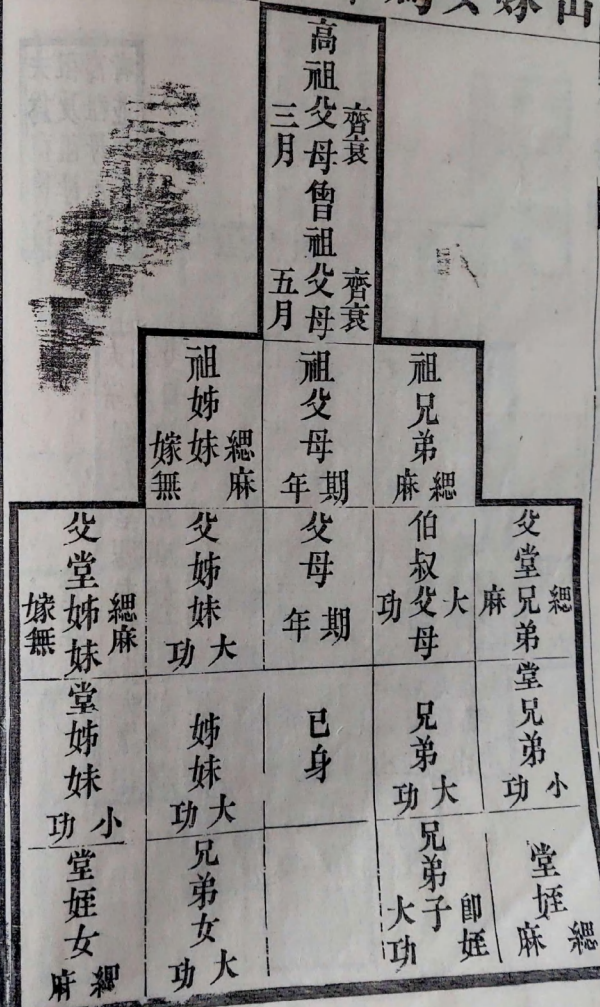 出嫁女爲本
高祖父母 齊衰三月
曾祖父母 齊衰五月
祖兄弟 緦麻
祖父母 期年
祖姊妹 緦麻 嫁無
父堂兄弟 緦麻
伯叔父母 大功
父母 期年
父姊妹 大功
父堂姊妹 緦麻 嫁無
堂兄弟 小功
兄弟 大功
已身
姊妹 大功
堂姊妹 小功
堂姪 緦麻
兄弟子 卽姪 大功
兄弟女 大功
堂姪女 緦麻